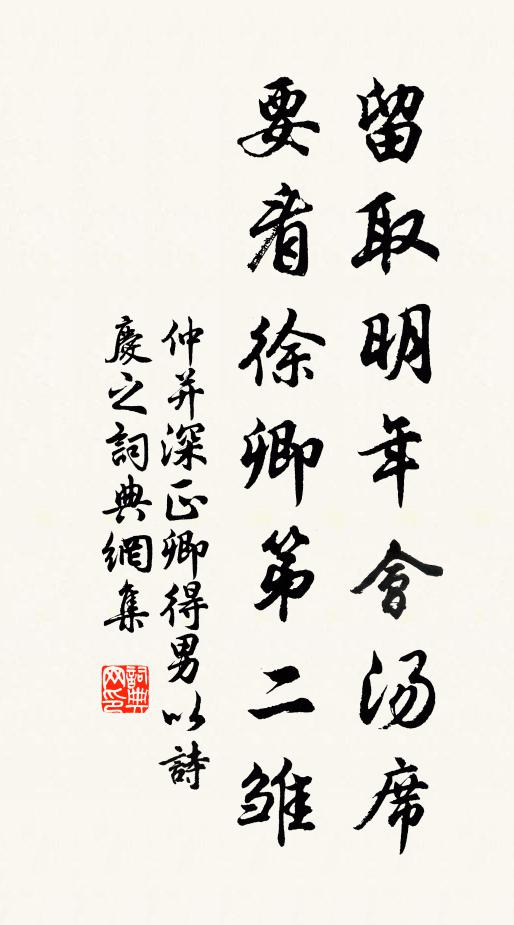 留取明年會湯席
要看徐卿第二雏
仲并深正卿得男以詩
慶之詞典網集
詞典网印